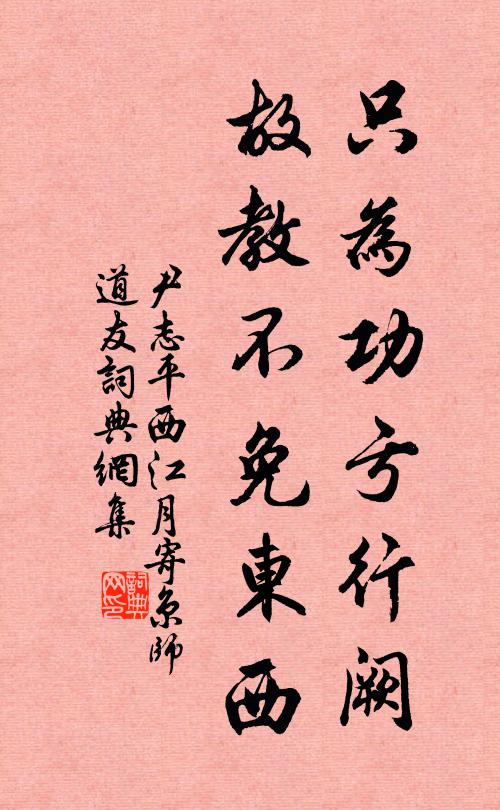 只為功亏行阙
故教不免東西
尹志平西江月寄京師
道友詞典網集
詞典
网印